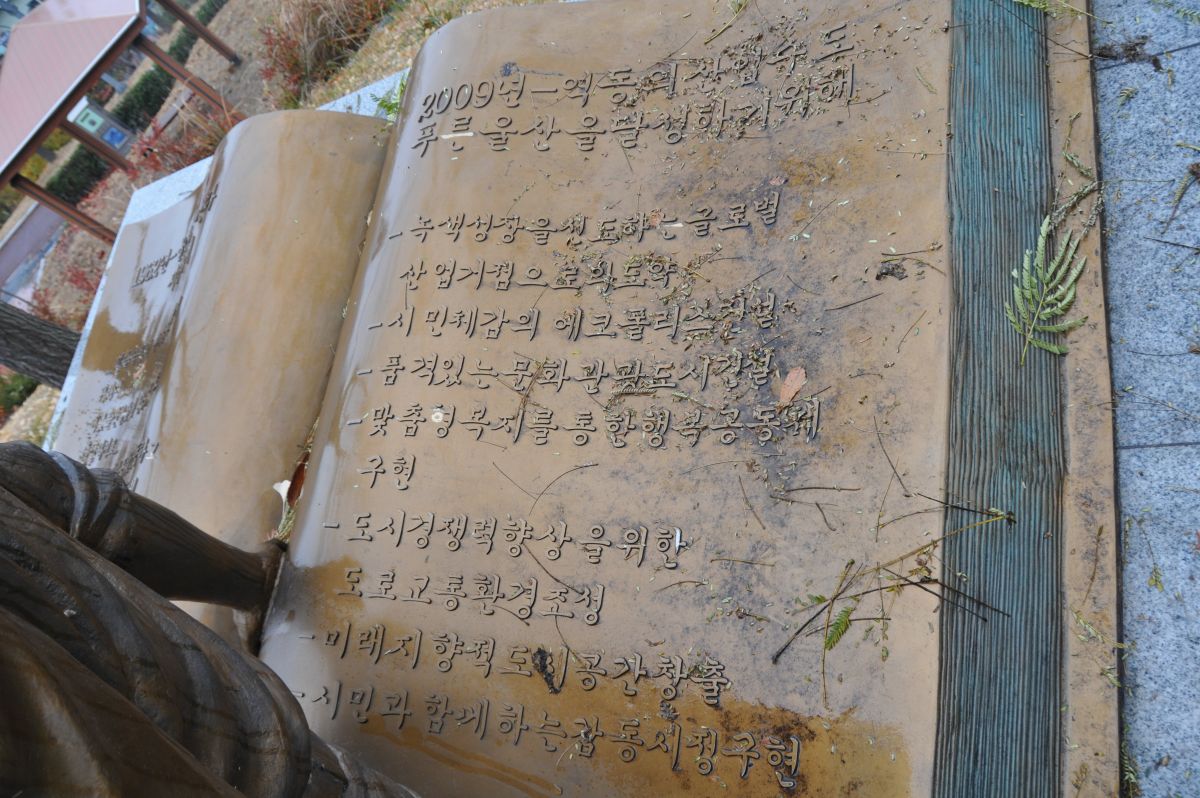 2009년-역동의산업수도
푸른울산을탄생하기위해
-녹색성장을선도하는글로벌
산업거점으로의도약
-시민체감의 에코폴리스건설
-품격있는문화관광도시건설
-맞춤형복지를통한행복공동체
구현
-도시경쟁력향상을위한
도로교통환경조성
-미래지향적도시공간창출
-시민과함께하는감동시정구현